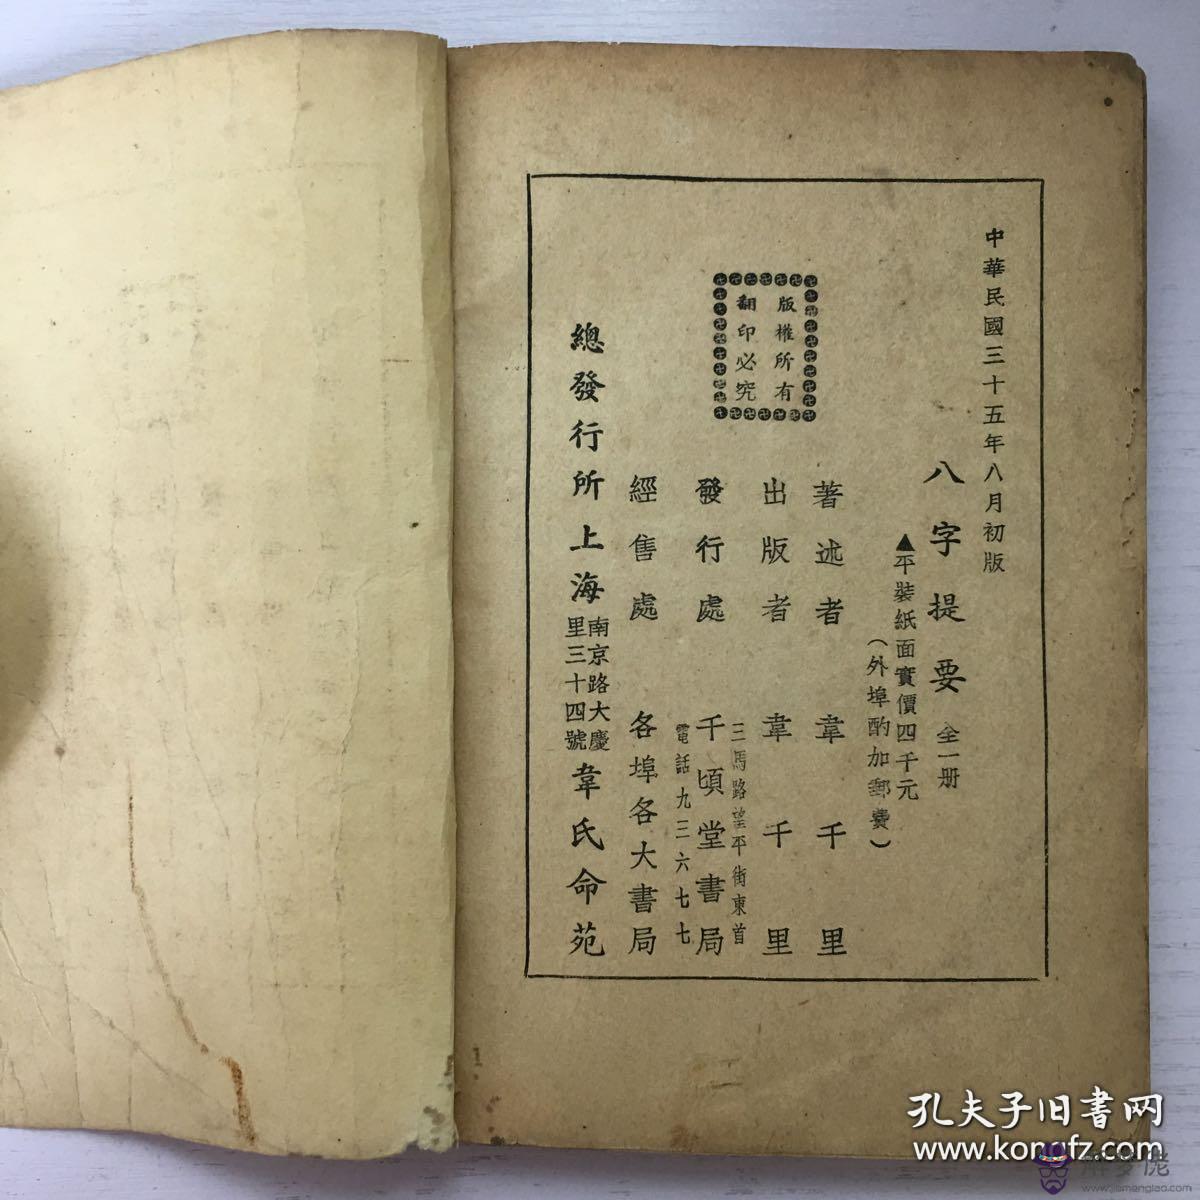 中華民國三十五年八月初版
八字提要 全一册
▲平裝紙面實價四千元
(外埠酌加郵費)
著述者 韋千里
出版者 韋千里
版權所有
翻印必究
三馬路望平街東首
發行處 千頃堂書局
電話九三六七七
經售處 各埠各大書局
總發行所上海南京路大慶里三十四號韋氏命苑
孔夫子旧书网
www.kongfz.com
www.jiemenglao.com